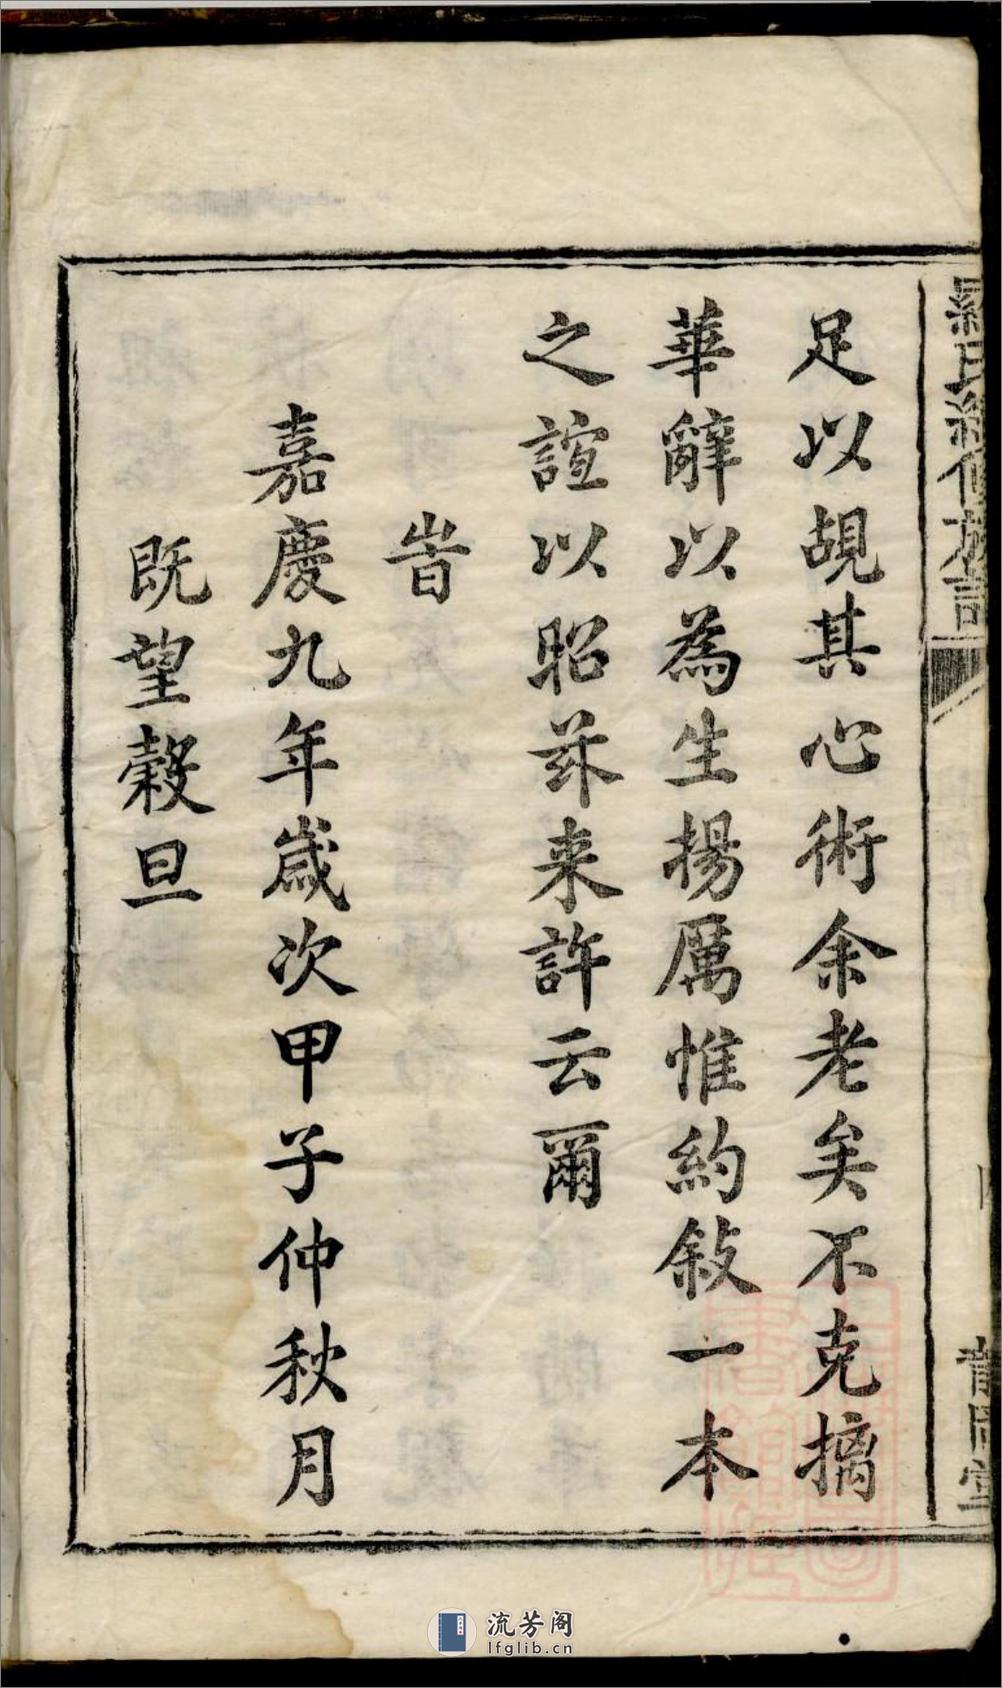 羅氏續修族譜
足以覘其心術余老矣不克摛
華辭以為生揚厲惟約敍一本
之誼以昭茲来許云爾
旹
嘉慶九年歲次甲子仲秋月
既望穀旦
流芳阁
lfglib.cn